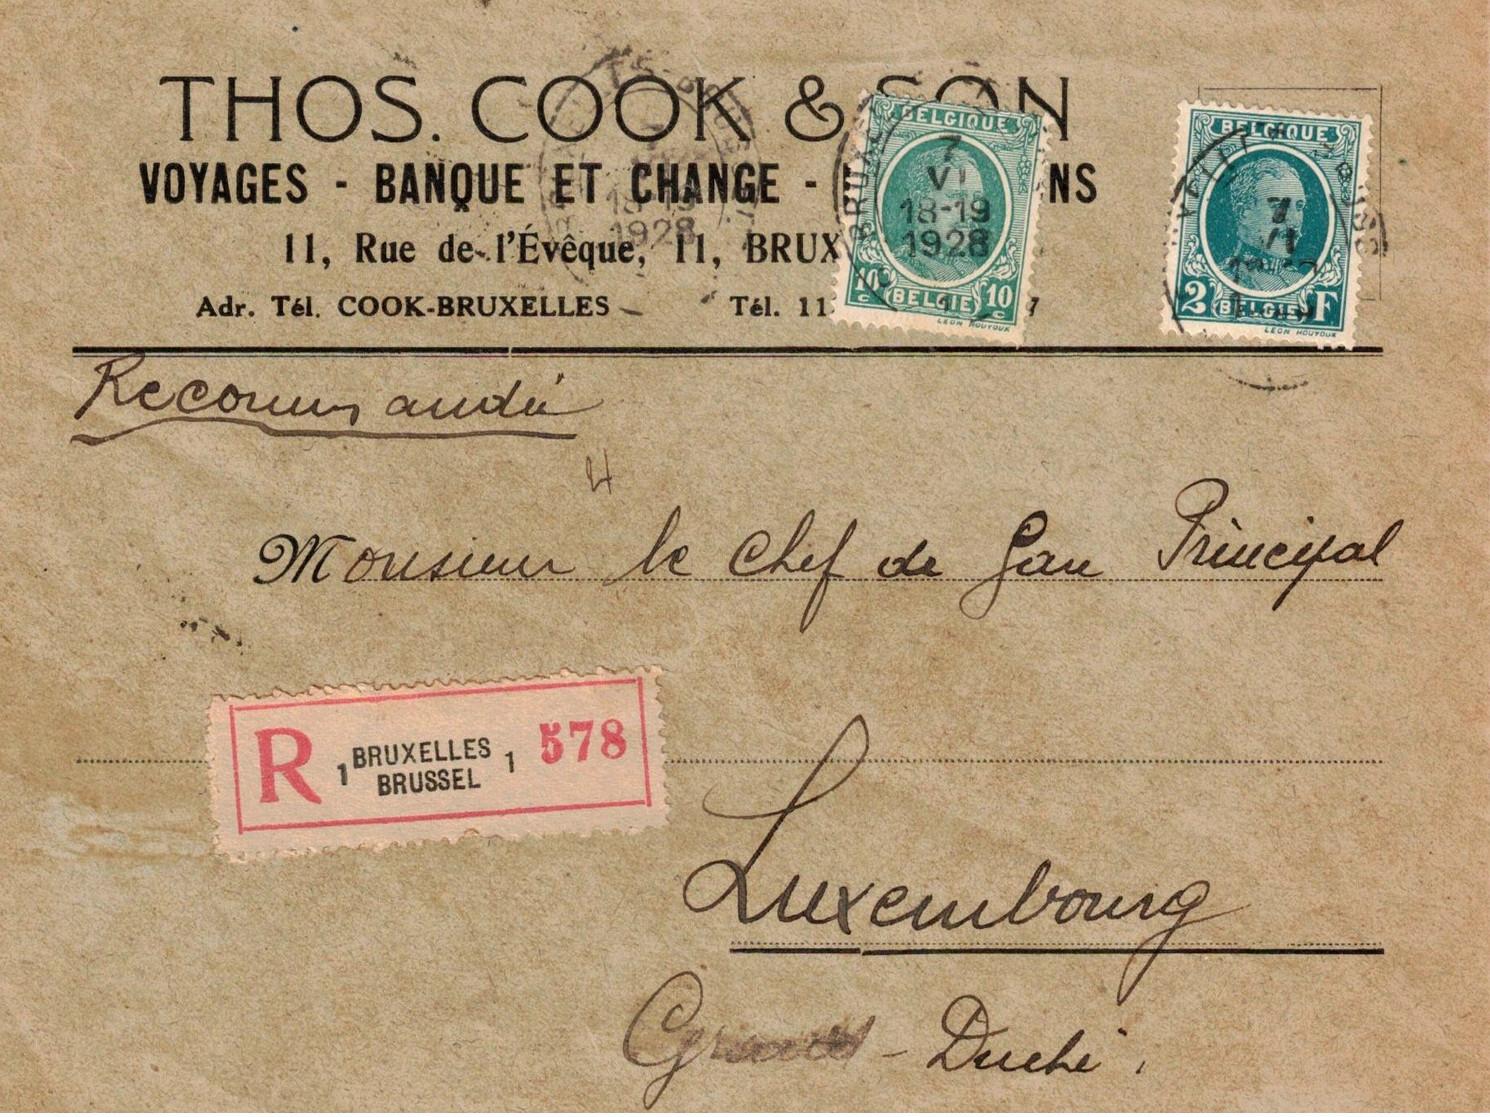 THOS. COOK & SON
VOYAGES - BANQUE ET CHANGE - NS
11, Rue de l'Évêque, 11, BRUX
Adr. Tél. COOK-BRUXELLES Tél. 11 7
BELGIQUE
7
VI
18-19
1928
10 c BELGIE 10 c
LEON HOUYOUX
BELGIQUE
7
VI
2 BELGIE F
LEON HOUYOUX
18-19
1928
Recommandée
Monsieur le Chef de Gare Principal
R 1 BRUXELLES 1 578
BRUSSEL
Luxembourg
Grand-Duché.